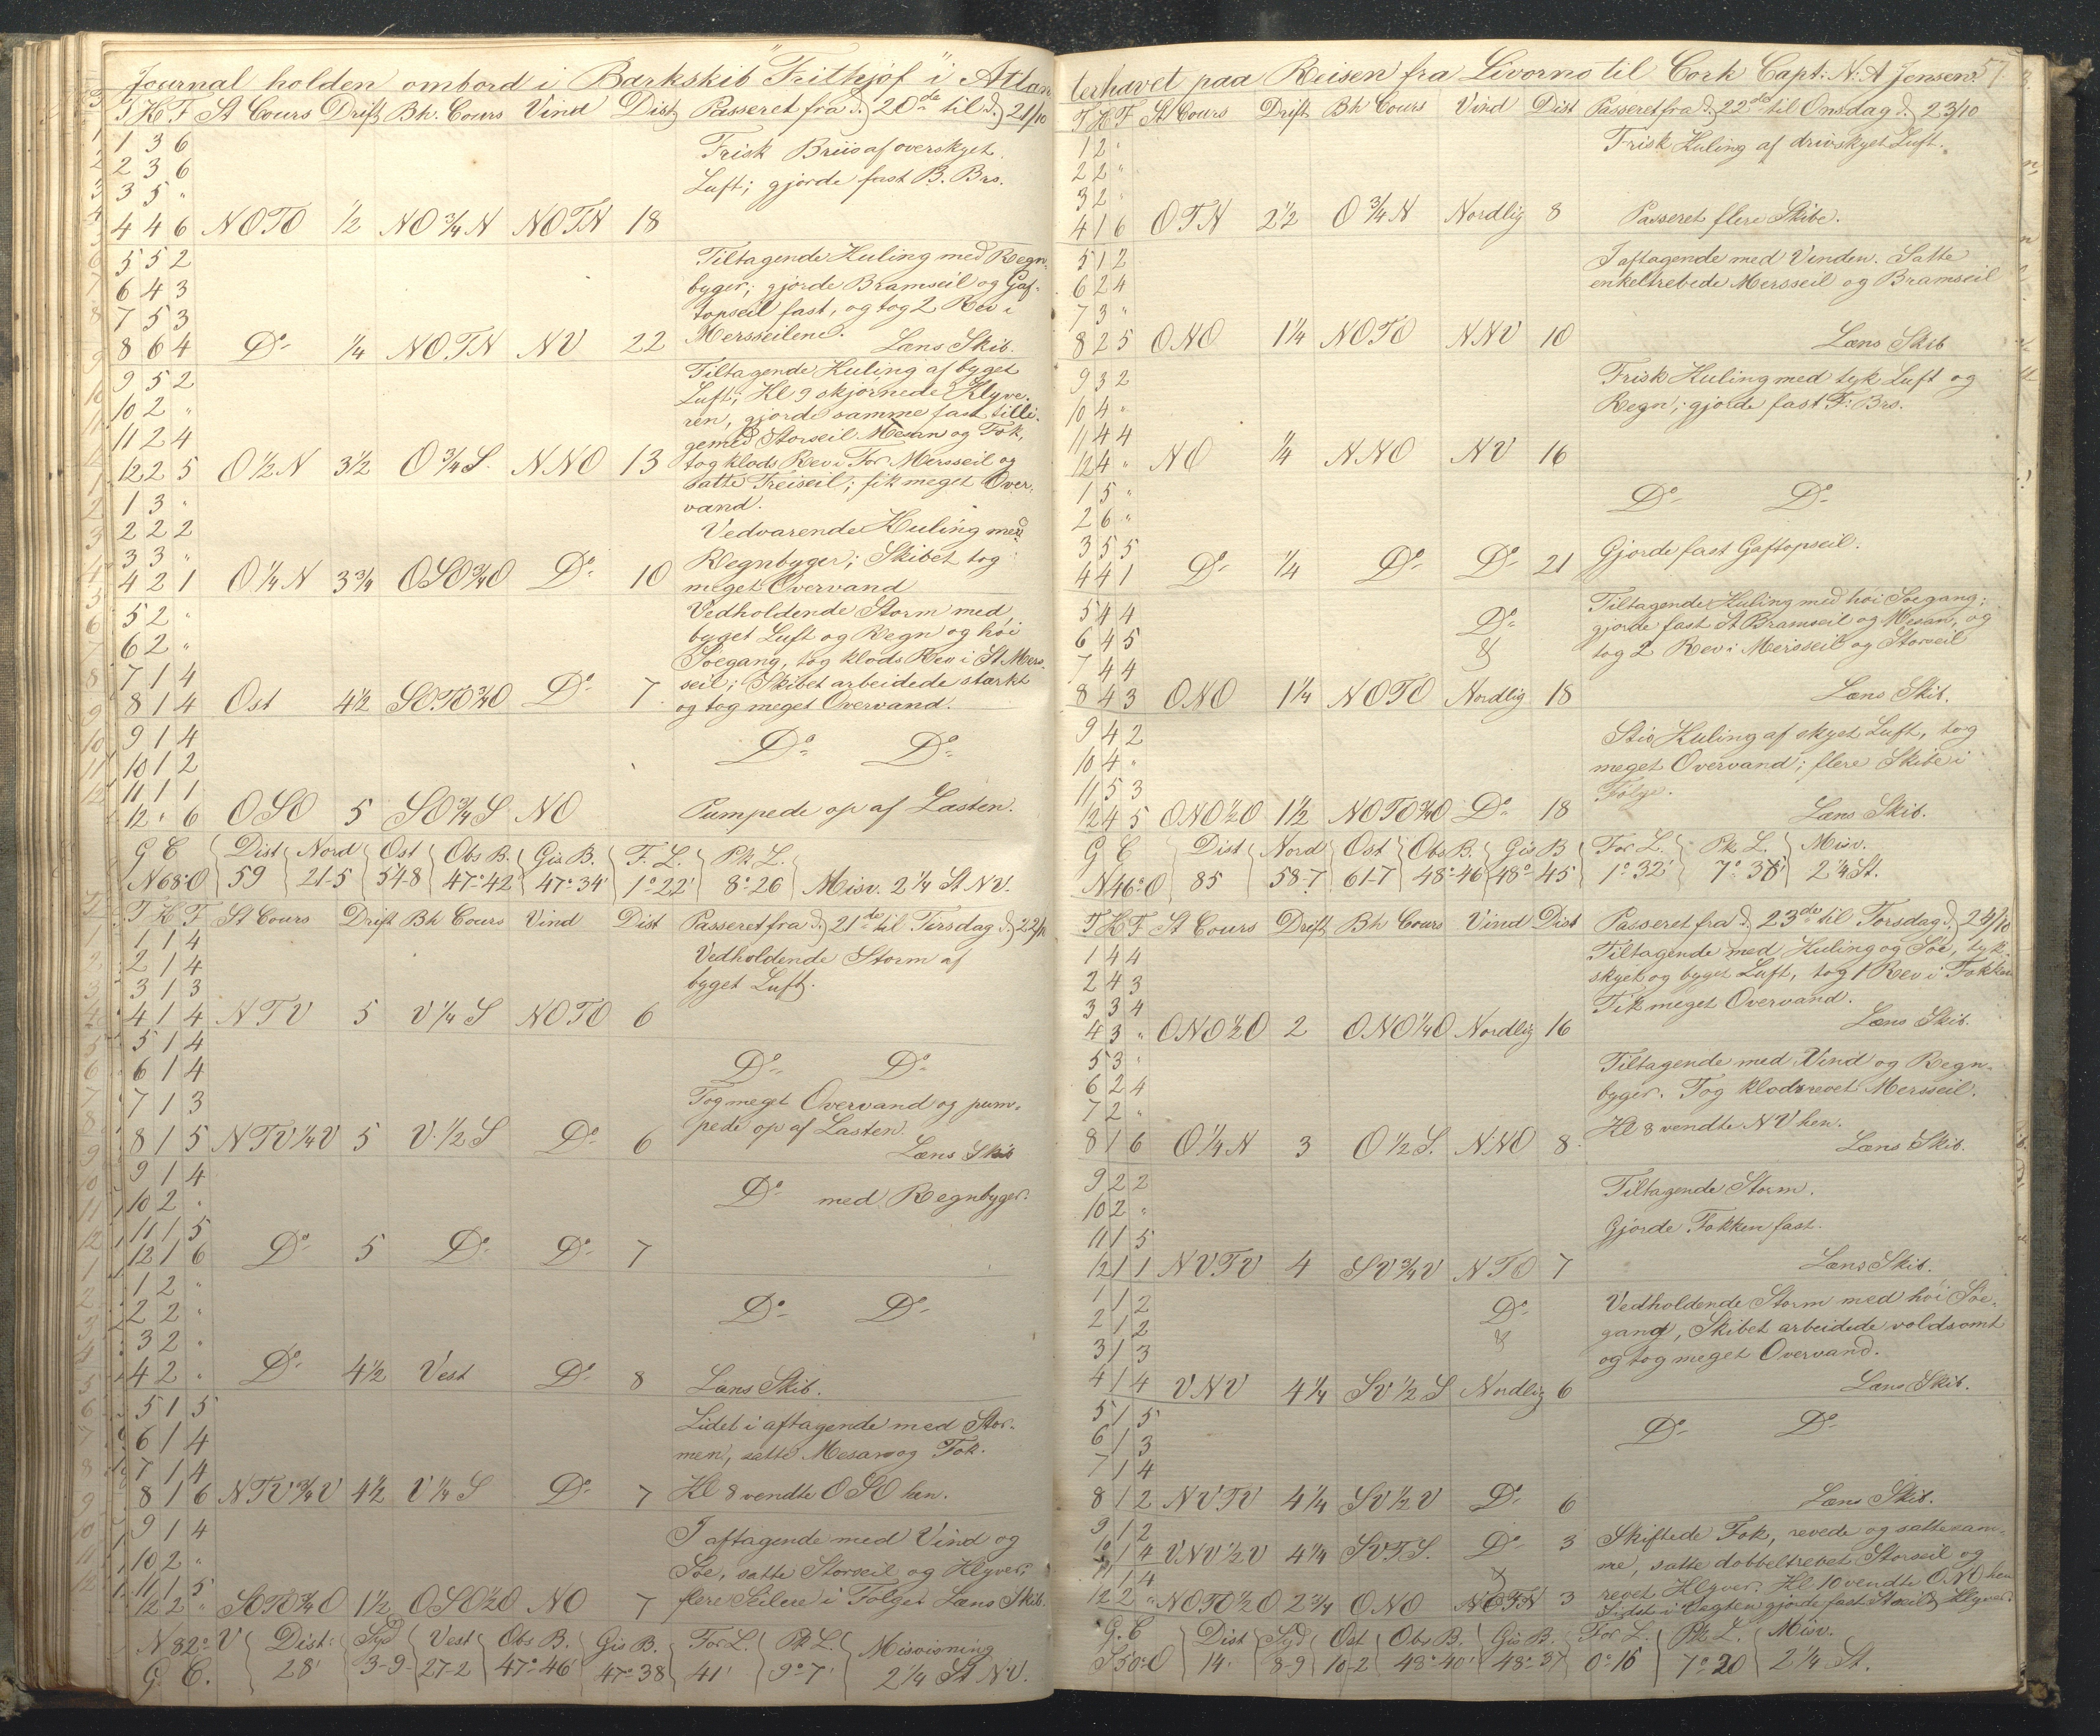 Journal holden ombord i Barkskib "Frithjof" i Atlan
T K F St Cours Drift Bh. Cours Vind Dist Passeret fra d. 20de til d. 21/10
1 3 6 Frisk Briis af overskyet
2 3 6 Luft; gjorde fast B. Brs.
3 5 "
4 4 6 NOTO 1/2 NO 3/4 N NOTN 18
5 5 2 Tiltagende Kuling med Regn-
6 4 3 byger; gjorde Bramseil og Gaf-
7 5 3 topseil fast, og tog 2 Rev i
8 6 4 Do 1/4 NOTN NV 22 Mersseilene. Læns Skib.
9 5 2 Tiltagende Kuling af byget
10 2 " Luft; Kl 9 skjørnede Klyve-
ren, gjorde samme fast tilli-
11 2 4 gemed Storseil Mesan og Fok,
12 2 5 O 1/2 N 3 1/2 O 3/4 S. NNO 13 tog klods Rev i For Mersseil og
satte Treiseil; fik meget Over-
1 3 " vand.
2 2 2 Vedvarende Kuling med
3 3 " Regnbyger; Skibet tog
4 2 1 O 1/4 N 3 3/4 OSO 3/4 O Do 10 meget Overvand
5 2 " Vedholdende Storm med
6 2 " byget Luft og Regn og høi
Søegang, tog klods Rev i St Mers-
7 1 4 seil; Skibet arbeidede stærkt
8 1 4 Ost 4 1/2 SOTO 3/4 O Do 7 og tog meget Overvand.
9 1 4 Do Do
10 1 2
11 1 1
12 " 6 OSO 5 SO 3/4 S NO Pumpede op af Lasten.
G C Dist Nord Ost Obs B. Gis B. F. L. Pk L.
N 68° O 59 21-5 54-8 47°-42' 47°-34' 1°-22' 8°-26 Misv. 2 1/4 St NV.
T K F St Cours Drift Bh Cours Vind Dist Passeret fra d. 21de til Tirsdag d. 22/10
1 1 4 Vedholdende Storm af
2 1 4 byget Luft.
3 1 3
4 1 4 NTV 5 V 1/4 S NOTO 6
5 1 4
6 1 4 Do Do
7 1 3 Tog meget Overvand og pum-
8 1 5 NTV 1/4 V 5 V. 1/2 S Do 6 pede op af Lasten.
Læns Skib
9 1 4
10 2 " Do med Regnbyger.
11 1 5
12 1 6 Do 5 Do Do 7
1 2 "
2 2 " Do Do
3 2 "
4 2 " Do 4 1/2 Vest Do 8 Læns Skib.
5 1 5 Lidet i aftagende med Stor-
6 1 4 men, satte Mesan og Fok.
7 1 4
8 1 6 NTV 3/4 V 4 1/2 V 1/4 S Do 7 Kl 8 vendte OSO hen.
9 1 4 I aftagende med Vind og
10 2 " Søe, satte Storseil og Klyver;
11 1 5
12 2 " SOTO 3/4 O 1 1/2 OSO 1/2 O NO 7 flere Seilere i Følge. Læns Skib.
N 82° V Dist: Syd Vest Obs B. Gis B. For L. Pk L. Misvisning
G. C. 28' 3-9 27-2 47°-46' 47°-38 41' 9°-7' 2 1/4 St NV.
terhavet paa Reisen fra Livorno til Cork Capt: N: A Jensen. 57.
T K F St Cours Drift Bh Cours Vind Dist Passeret fra d. 22de til Onsdag d. 23/10
1 2 " Frisk Kuling af drivskyet Luft.
2 2 "
3 2 "
4 1 6 OTN 2 1/2 O 3/4 N Nordlig 8 Passeret flere Skibe.
5 1 2 I aftagende med Vinden. Satte
6 2 4 enkeltrebede Mersseil og Bramseil
7 3 "
8 2 5 ONO 1 1/4 NOTO NNV 10 Læns Skib
9 3 2 Frisk Kuling med tyk Luft og
10 4 " Regn; gjorde fast F: Brs.
11 4 4
12 4 " NO 1/4 NNO NV 16
1 5 " Do Do
2 6 "
3 5 5 Gjorde fast Gaftopseil.
4 4 1 Do 1/4 Do Do 21
5 4 4 Do Tiltagende Kuling med høi Søegang;
6 4 5 & gjorde fast St Bramseil og Mesan, og
7 4 4 tog 2 Rev i Mersseil og Storseil
8 4 3 ONO 1 1/4 NOTO Nordlig 18 Læns Skib.
9 4 2 Stiv Kuling af skyet Luft, tog
10 4 " meget Overvand; flere Skibe i
11 5 3 Følge.
12 4 5 ONO 1/2 O 1 1/2 NOTO 3/4 O Do 18 Læns Skib.
G C Dist Nord Ost Obs B. Gis B For L. Pk L. Misv.
N 46° O 85 58-7 61-7 48°-46 48° 45 1° 32' 7° 38' 2 1/4 St.
T K F St Cours Drift Bh Cours Vind Dist Passeret fra d. 23de til Torsdag d. 24/10
1 4 4 Tiltagende med Kuling og Søe, tyk-
2 4 3 skyet og byget Luft, tog 1 Rev i Fokken
3 3 4 Fik meget Overvand.
4 3 " ONO 1/2 O 2 ONO 1/4 O Nordlig 16 Læns Skib.
5 3 " Tiltagende med Vind og Regn-
6 2 4 byger. Tog klodsrevet Mersseil.
7 2 " Kl 8 vendte NV hen.
8 1 6 O 1/4 N 3 O 1/2 S. NNO 8 Læns Skib.
9 2 2 Tiltagende Storm.
10 2 " Gjorde Fokken fast.
11 1 5
12 1 1 NVTV 4 SV 3/4 V NTO 7 Læns Skib.
1 1 2 Do Vedholdende Storm med høi Søe-
2 1 2 & gang, Skibet arbeidede voldsomt
3 1 3 og tog meget Overvand.
4 1 4 VNV 4 1/4 SV 1/2 S Nordlig 6 Læns Skib.
5 1 5 Do Do
6 1 3
7 1 4
8 1 2 NVTV 4 1/4 SV 1/2 V Do 6 Læns Skib.
9 1 2 Skiftede Fok, revede og satte sam-
10 1 4 VNV 1/2 V 4 1/4 SVTS. Do 3 me, satte dobbeltrevet Storseil og
11 1 4 & revet Klyver. Kl 10 vendte ONO hen
12 2 " NOTO 1/2 O 2 3/4 ONO NOTN 3 Sidst i Vagten gjorde fast Storseil & Klyver.
G. C Dist Syd Ost Obs B. Gis B. For L. Pk L. Misv.
S 50° O 14' 8-9 10-2 48°-40' 48°-37 0° 16 7° 20 2 1/4 St.